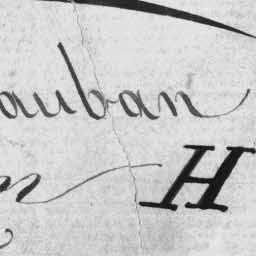 auban
n H